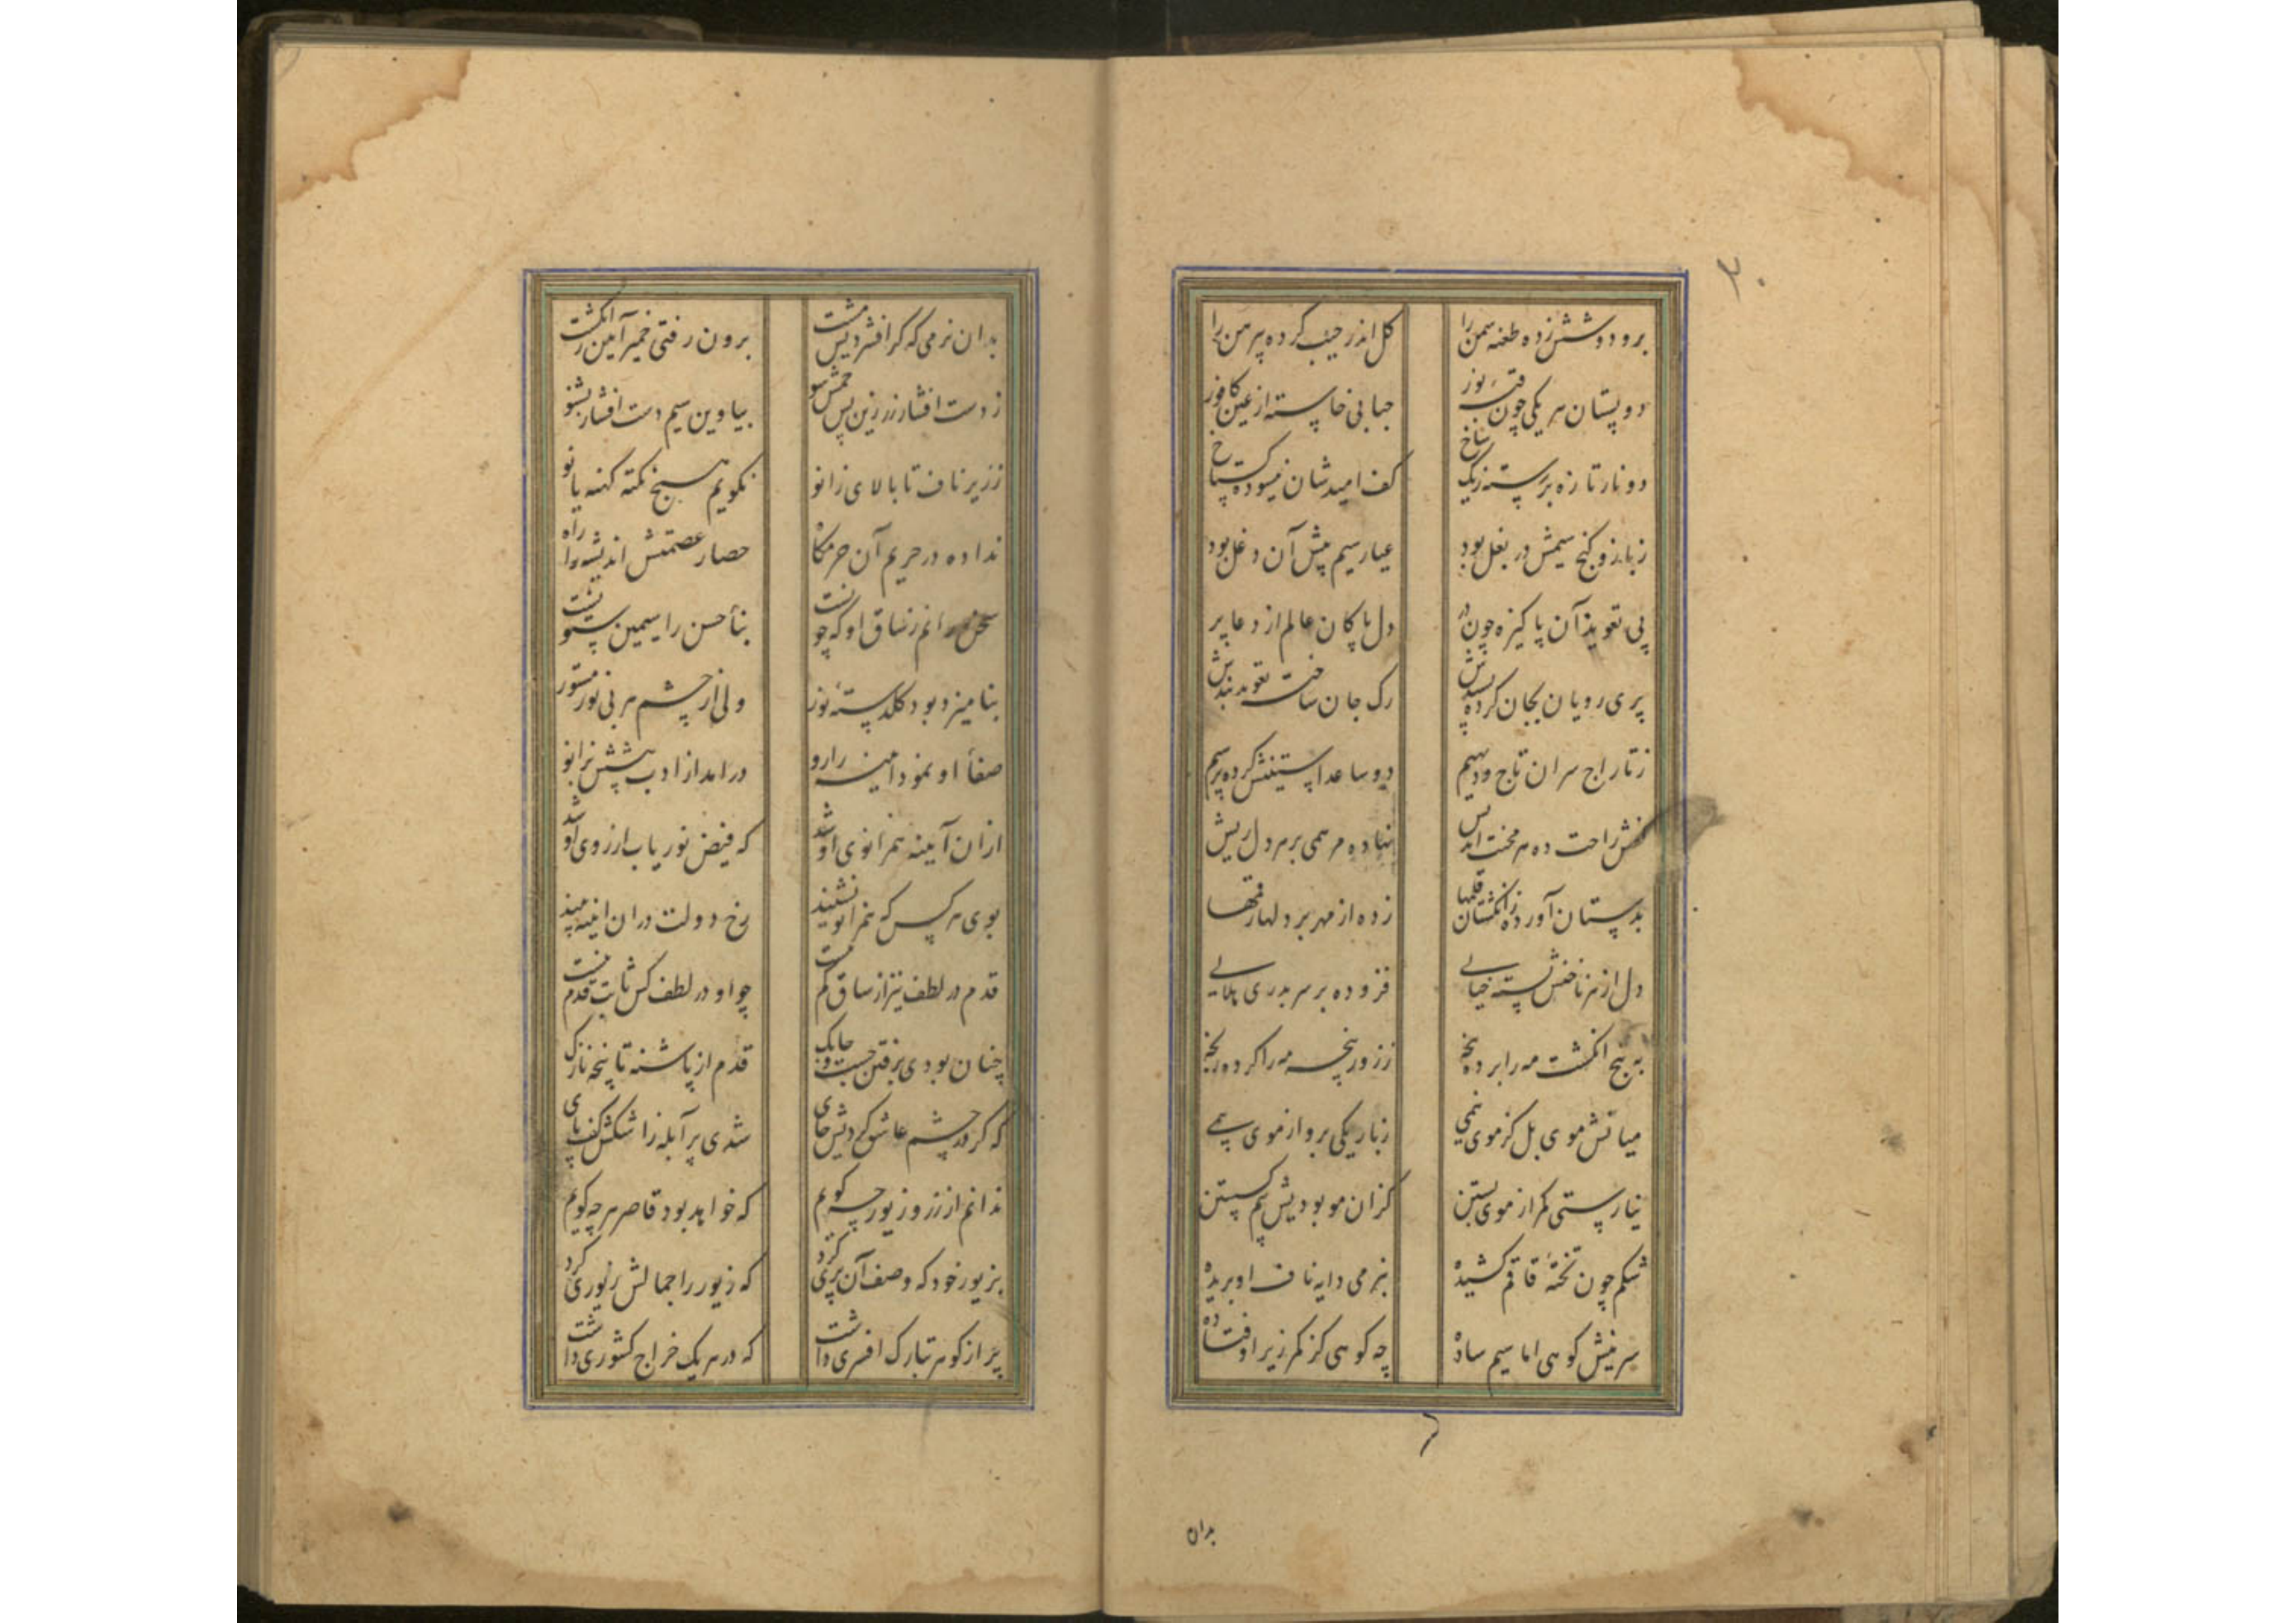 ۳۰
برو دوشش زده طعنه سمن را گل اندر جیب کرده پیرهن را
دو پستان هر یکی چون قبهٔ نور حبابی خاسته از عین کافور
دو نار تازه بر رسته ز یک شاخ کف امیدشان نبسوده گستاخ
ز بازو گنج سیمش در بغل بود عیار سیم پیش آن دغل بود
پی تعویذ آن پاکیزه چون در دل پاکان عالم از دعا پر
پری رویان بجان کرده پسندش رک جان ساخت تعویذ بندش
ز تاراج سران تاج و دیهیم دو ساعد آستینش کرده پر سیم
کفش راحت ده هر محنت اندیش نهاده مرهمی بر هر دل ریش
بدستان آورده ز انگشتان قلمها زده از مهر بر دلها رقمها
دل از هر ناخنش بسته خیالی فزوده بر سر بدری هلالی
به پنج انگشت مه را برده پنجه ز زور پنجه مه را کرده رنجه
میانش موی بل کز موی نیمی ز باریکی برو از موی بیمی
نیارستی کمر از موی بستن کزان مو بودیش بیم گسستن
شکم چون تختهٔ قاقم کشیده بنرمی دایه ناف او بریده
سرینش کوهی اما سیم ساده چه کوهی کز کمر زیر اوفتاده
بدان
بدان نرمی که گر افشردیش مشت برون رفتی خمیر آیین ز انگشت
ز دست افشار زرین پس خمش شو بیا وین سیم دست افشار بشنو
ز زیر ناف تا بالای زانو نگویم هیچ نکته کهنه یا نو
نداده در حریم آن حرمگاه حصار عصمتش اندیشه را راه
سخن رانم ز ساق او که چونست بنأ حسن را سیمین ستونست
بنامیزد بود گلدستهٔ نور ولی از چشم هر بی نور مستور
صفأ او نمود آیینه را رو درامد از ادب پیشش بزانو
ازان آیینه همزانوی او شد که فیض نور یاب از روی او شد
بوی هر کس که همزانو نشیند رخ دولت دران آیینه بیند
قدم در لطف نیز از ساق کم نیست چو او در لطف کس ثابت قدم نیست
چنان بودی برفتن چست و چابک قدم از پاشنه تا پنجه نازک
که گر در چشم عاشق کردیش جای شدی پر آبله ز اشکش کف پای
ندانم از زر و زیور چه گویم که خواهد بود قاصر هر چه گویم
بزیور خود که وصف آن پری کرد که زیور را جمالش زیوری کرد
پر از گوهر تبارک افسری داشت که در هر یک خراج کشوری داشت